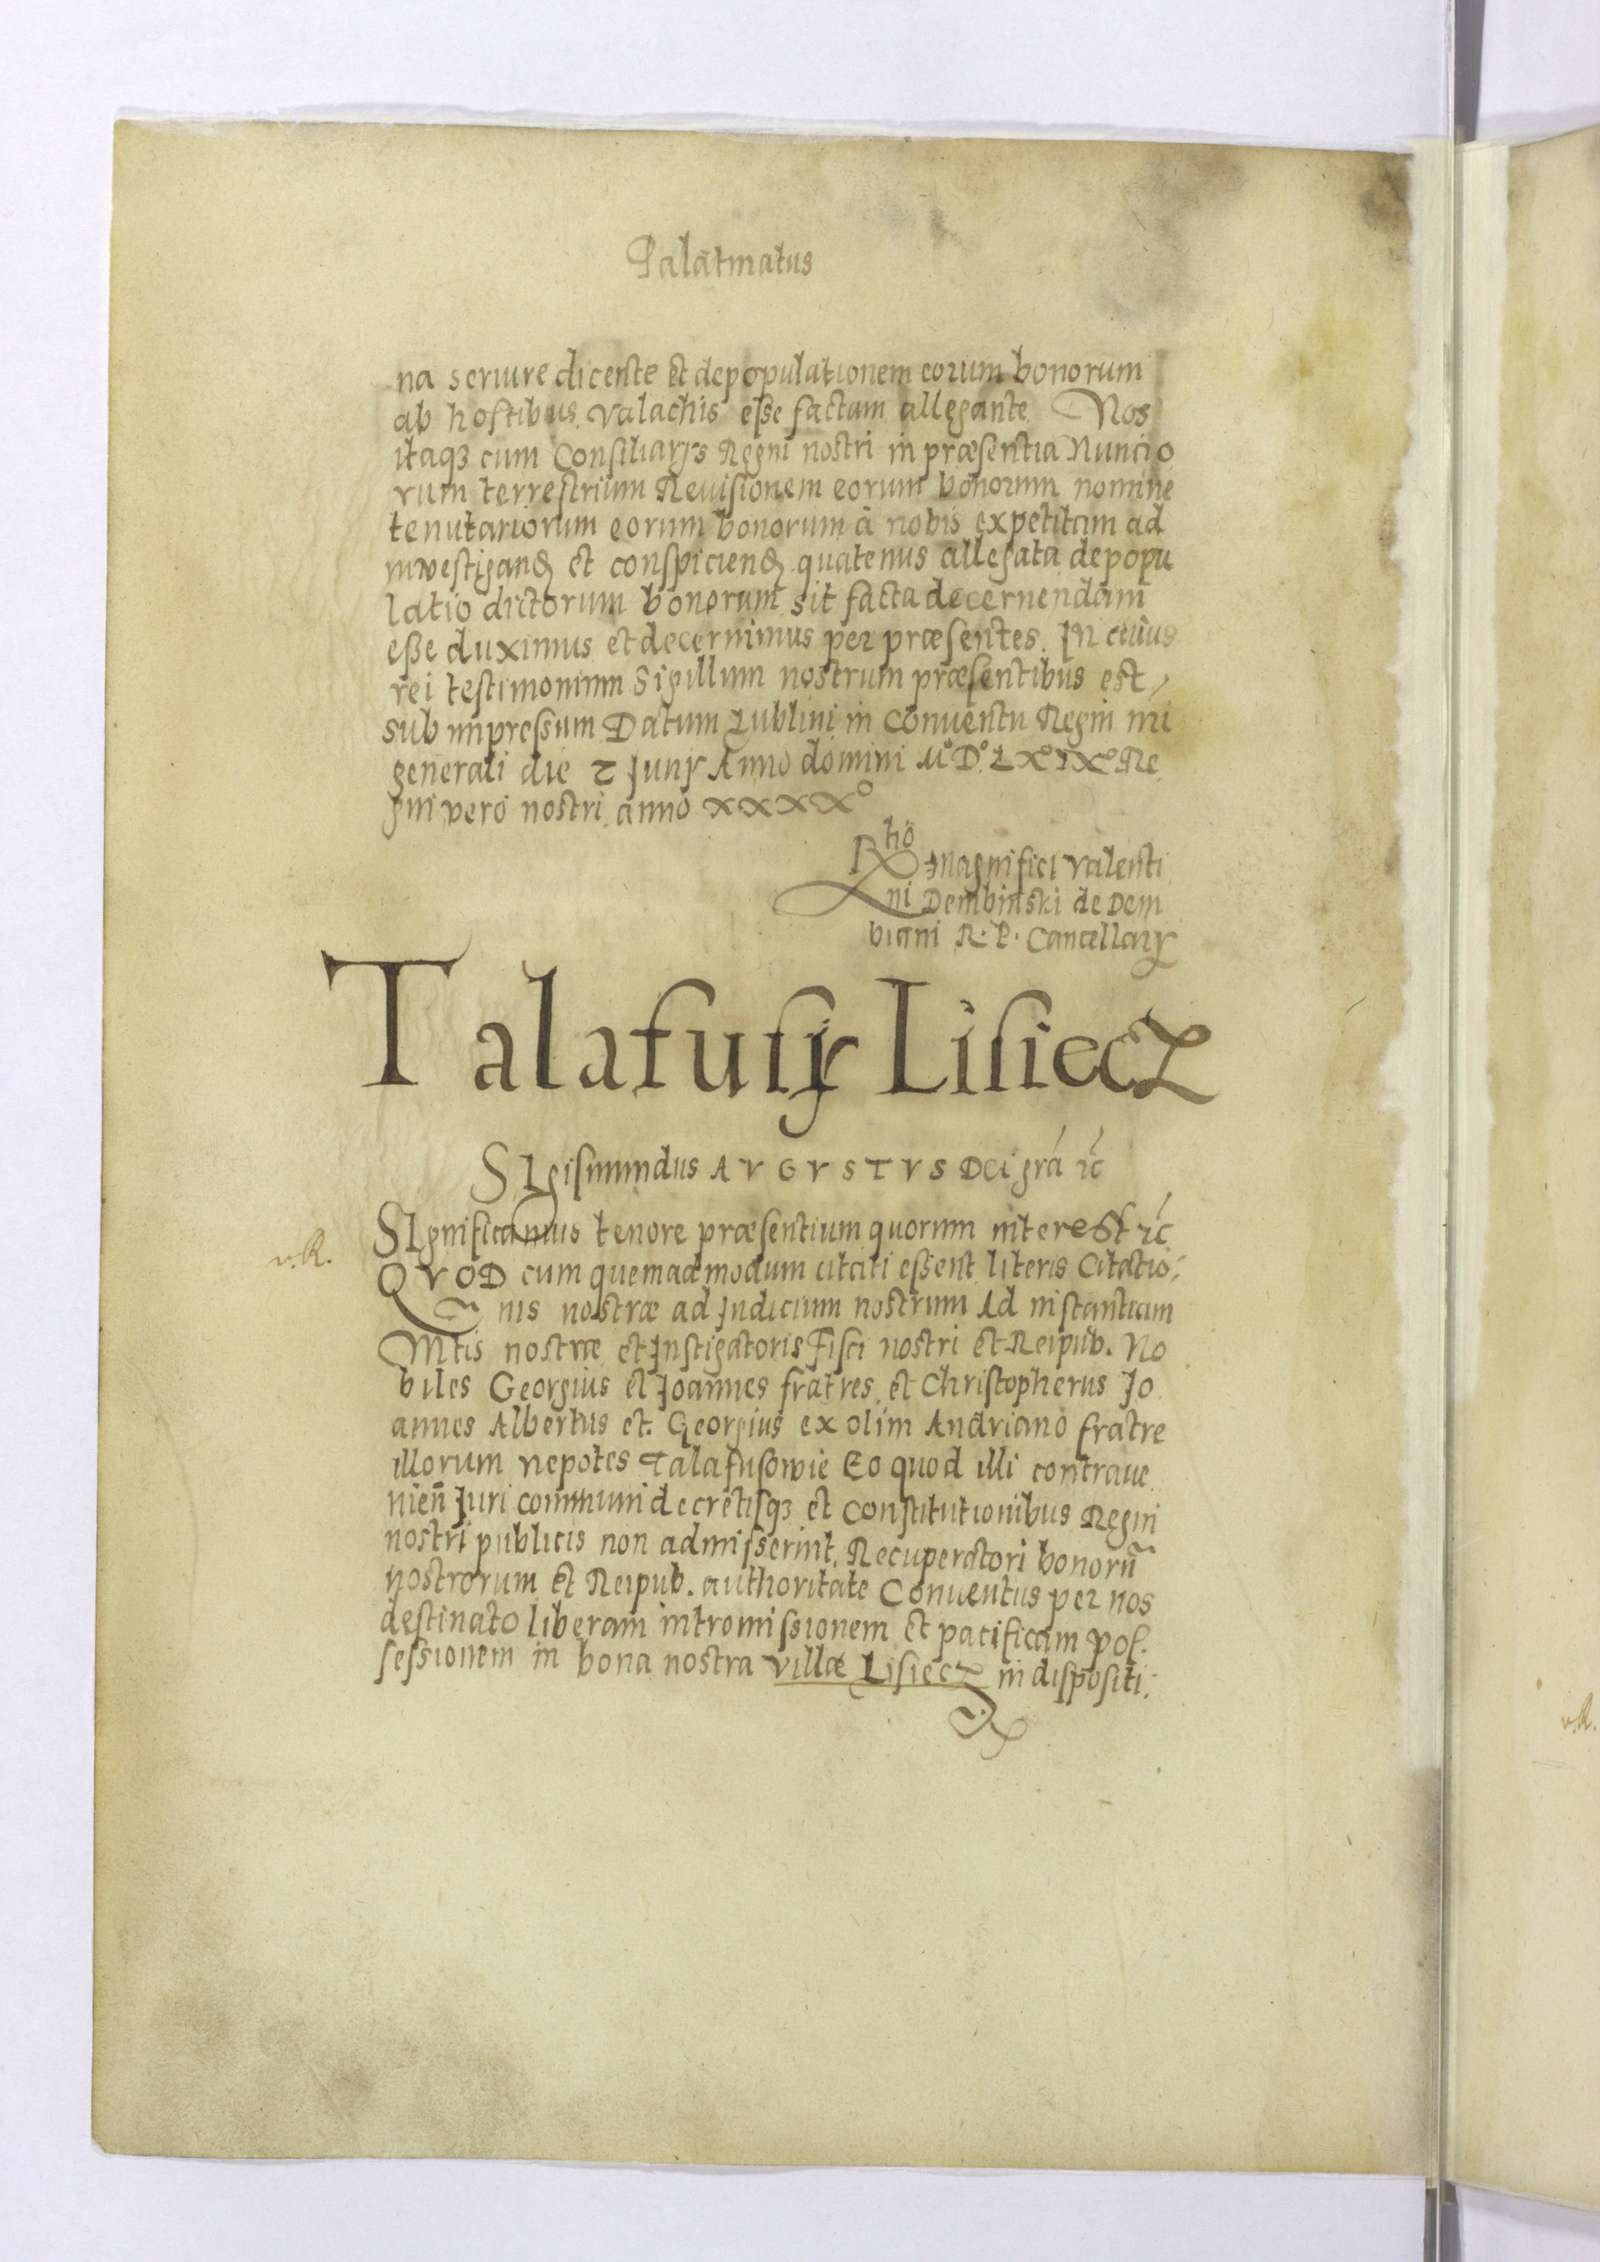 Palatinatus
na seruire dicente et depopulationem eorum bonorum
ab hostibus Valachis esse factam allegante Nos
itaqꝫ cum Consiliarijs Regni nostri in præsentia Nuncio
rum terrestrium Reuisionem eorum bonorum nomine
tenutariorum eorum bonorum à nobis expetitam ad
inuestigand et conspiciend quatenus allegata depopu
latio dictorum bonorum sit facta decernendam
esse duximus et decernimus per præsentes. In cuius
rei testimonium Sigillum nostrum præsentibus est
sub impressum Datum Lublini in Conuentu Regni nri
generali die Junij Anno domini M° D° LX° IX° Re
gni vero nostri anno XXXX°
Rtio Magnifici Valenti
ni Dembinski de Dem
biani R. P. Cancellarij
Talafusij Lisiecz
SIgismundus AVGVSTVS Dei gra ꝛc
SIgnificamus tenore præsentium quorum interest ꝛc
v.R.
QVOD cum quemadmodum citati essent literis Citatio-
nis nostræ ad Judicium nostrum Ad instantiam
Mtis nostræ et Instigatoris Fisci nostri et Reipub. No
biles Georgius et Joannes fratres et Christopherus Jo
annes Albertus et Georgius ex olim Andriano fratre
illorum nepotes Talafusowie Eo quod illi contraue
nien̄ Juri communi decretisqꝫ et Constitutionibus Regni
nostri publicis non admisserint Recuperatori bonorū
nostrorum et Reipub. authoritate Conuentus per nos
destinato liberam intromissionem et pacificam pos
sessionem in bona nostra villæ Lisiecz in dispositi:
v.R.